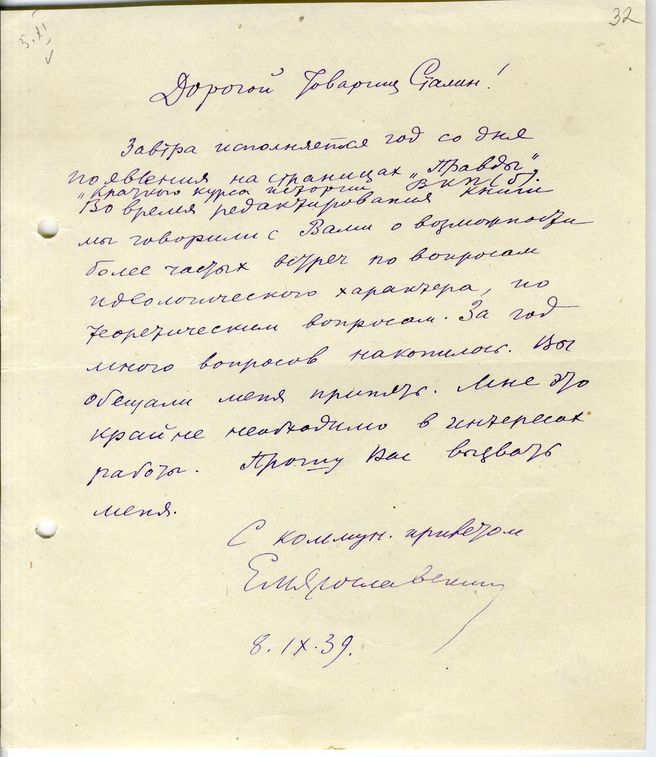 32
5.XI
Дорогой Товарищ Сталин!
Завтра исполняется год со дня
появления на страницах „Правды"
„Краткого курса истории ВКП(б)."
Во время редактирования книги
мы говорили с Вами о возможности
более частых встреч по вопросам
идеологического характера, по
теоретическим вопросам. За год
много вопросов накопилось. Вы
обещали меня принять. Мне это
крайне необходимо в интересах
работы. Прошу Вас вызвать
меня.
С коммун. приветом
Ем Ярославский
8.IX.39.